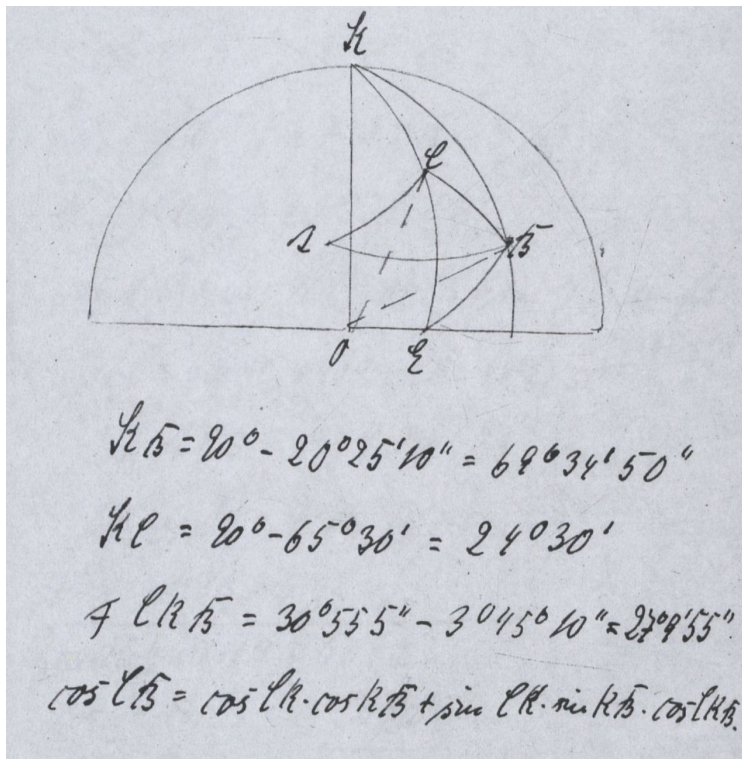 K
C
A
Б
O
E
KБ = 90° - 20°25'10" = 69°34'50"
KC = 90° - 65°30' = 24°30'
∢ CKБ = 30°55'5" - 3°45'10" = 27°9'55"
cos CБ = cos CK · cos KБ + sin CK · sin KБ · cos CKБ.